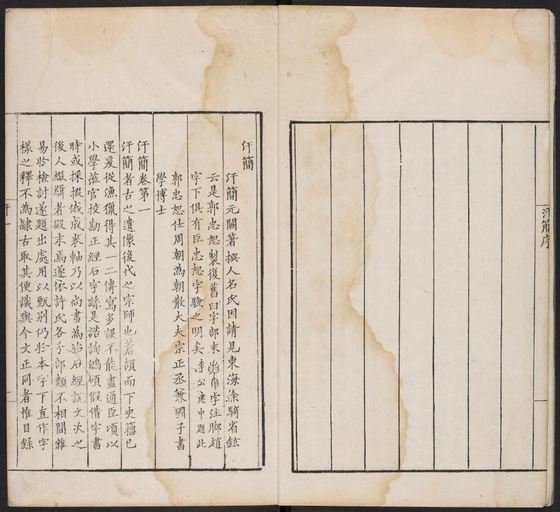 汗簡序
汗簡
汗簡元闕著撰人名氏因請見東海徐騎省鉉
云是郭忠恕製復舊臼字部末字注脚趙
字下俱有臣忠恕字驗之明矣李公建中題此
郭忠恕仕周朝為朝散大夫宗正丞兼國子書
學博士
汗簡卷第一
汗簡者古之遺像後代之宗師也蒼頡而下史籀已
還爰從漁獵得其一二傳寫多誤不能盡通臣頃以
小學蒞官校勘正經石字繇是諮詢鴻碩假借字書
時或採掇俄成卷軸乃以尚書為始石經說文次之
後人綴緝者殿末焉遂依許氏各分部類不相間雜
易於檢討遂題出處用以甄別仍於本字下直作字
樣之釋不為隸古取其便識與今文正同者惟目錄